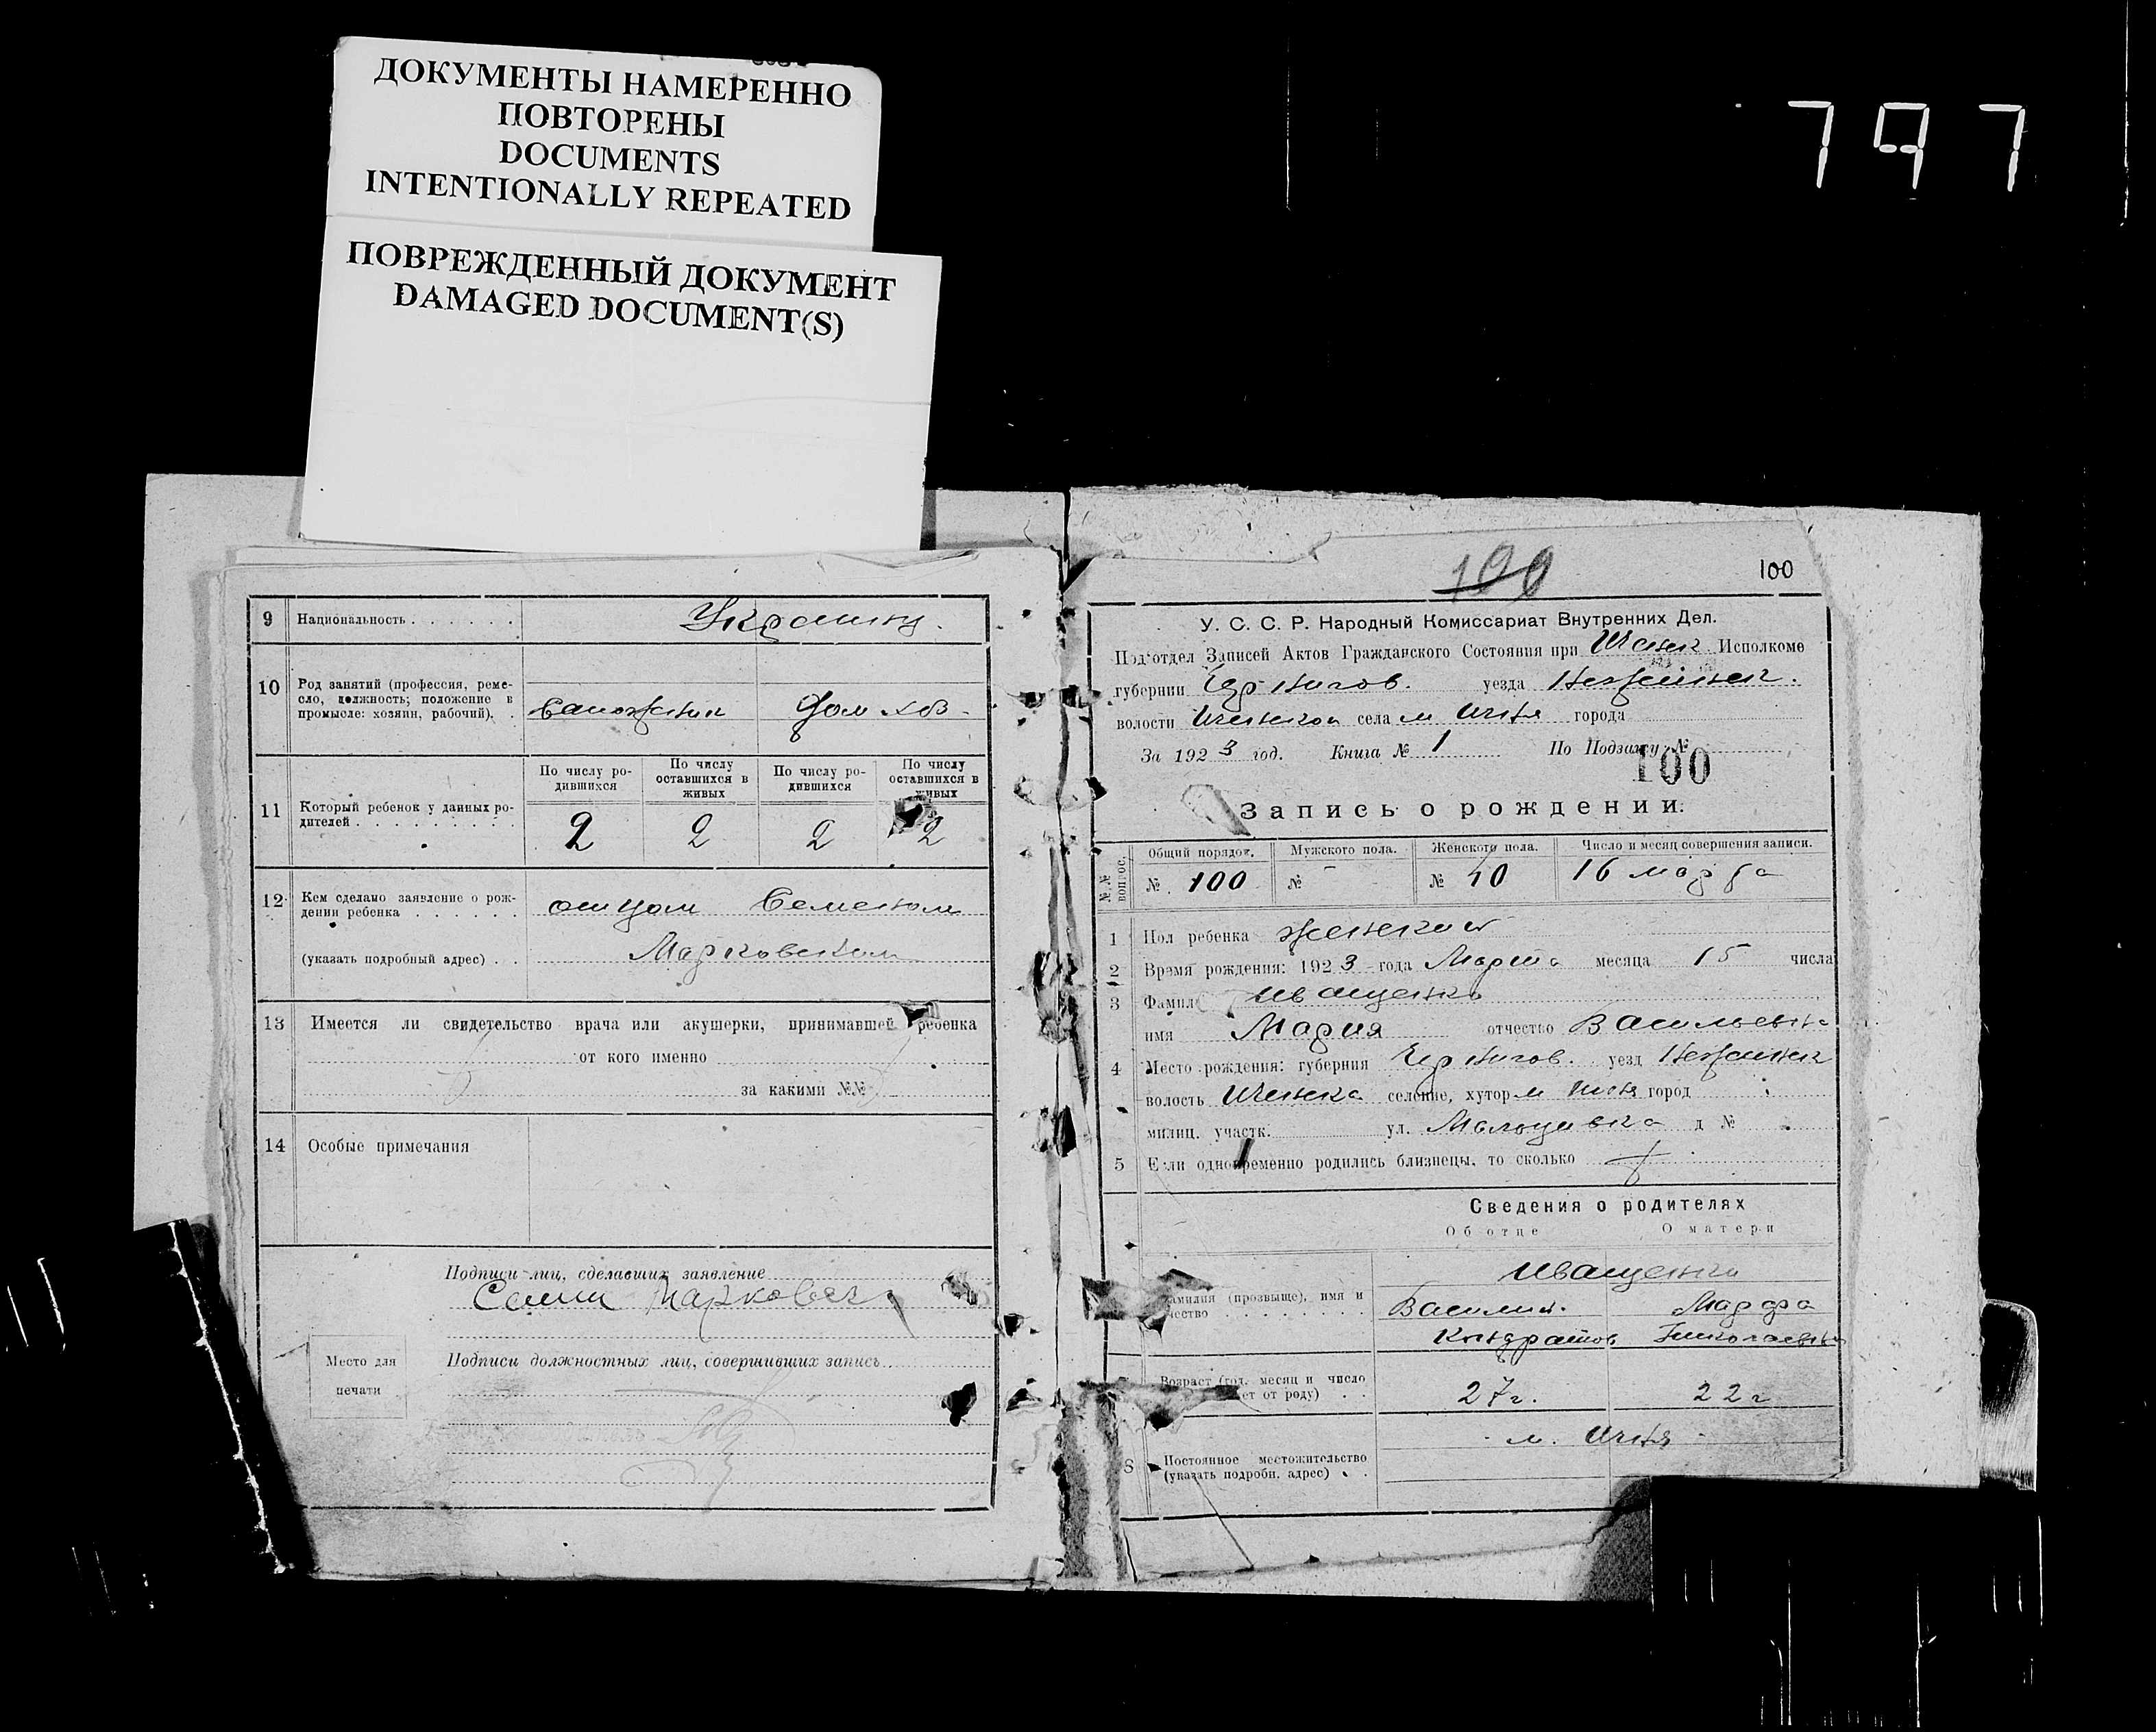 797
ДОКУМЕНТЫ НАМЕРЕННО
ПОВТОРЕНЫ
DOCUMENTS
INTENTIONALLY REPEATED
ПОВРЕЖДЕННЫЙ ДОКУМЕНТ
DAMAGED DOCUMENT(S)
9 Национальность . . . . . .
10 Род занятий (профессия, реме-
сло, должность; положение в
промысле: хозяин, рабочий). .
сапожник
дом хоз
11 Который ребенок у данных ро-
дителей . . . . . . . . .
По числу ро-
дившихся
По числу
оставшихся в
живых
По числу ро-
дившихся
По числу
оставшихся в
живых
2 2 2 2
12 Кем сделано заявление о рож-
дении ребенка . . . . . .
отцом Семеном
(указать подробный адрес) . .
Марковским
13 Имеется ли свидетельство врача или акушерки, принимавшей ребенка
от кого именно
за какими №№
14 Особые примечания
Подписи лиц, сделавших заявление
Место для
печати
Подписи должностных лиц, совершивших запись
100
100
У. С. С. Р. Народный Комиссариат Внутренних Дел.
Подотдел Записей Актов Гражданского Состояния при Ичанск Исполкоме
губернии Чернигов. уезда Нежинск.
волости села м Ичня города
За 1923 год. Книга № 1 По Подзагсу №
100
Запись о рождении.
№№ вопрос.
Общий порядок. Мужского пола. Женского пола. Число и месяц совершения записи.
№ 100 № - № 40 16 марта
1 Пол ребенка женской
2 Время рождения: 1923 года Марта месяца 15 числа
3 Фамил Иващенко
имя Мария отчество Васильевна
4 Место рождения: губерния Чернигов. уезд Нежинск
волость Иченска селение, хутор м Ичня город
милиц. участк. ул. д №
5 Если одновременно родились близнецы, то сколько
Сведения о родителях
Об отце О матери
Иващенко
амилия (прозвище), имя и
чество . . . . . . .
Василий. Марфа
Кондратов Николаевна
Возраст (год, месяц и число
ет от роду) . .
27 г. 22 г
8 Постоянное местожительство
(указать подробн. адрес) . .
м. Ичня